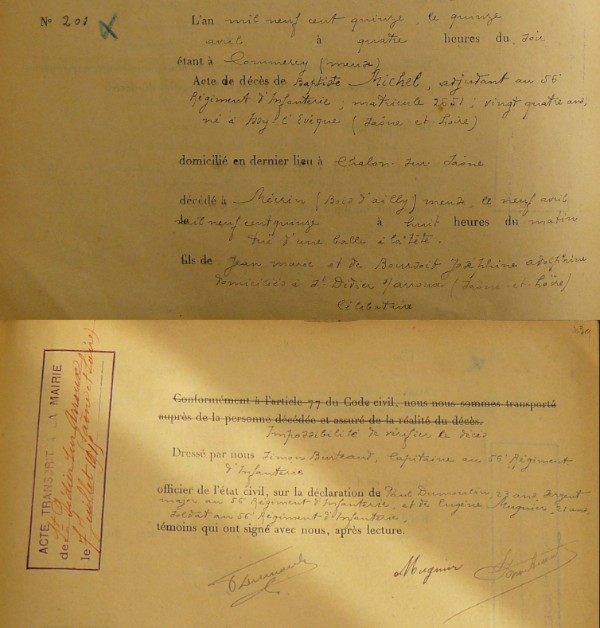 No 201
L'an mil neuf cent quinze, le quinze
avril à quatre heures du soir
étant à Commercy (Meuse)
Acte de décès de Baptiste Michel, adjudant au 56e
Régiment d'Infanterie, matricule 2851; vingt quatre ans,
né à Issy-l'Evêque (Saône-et-Loire)
domicilié en dernier lieu à Chalon-sur-Saône
décédé à (Bois d'ailly) meuse, le neuf avril
mil neuf cent quinze à huit heures du matin
Tué d'une balle à la tête.
fils de Jean marie et de Joséphine
domiciliés à St Didier s/arroux (Saône-et-Loire)
Célibataire
ACTE TRANSCRIT A LA MAIRIE
de St Didier sur Arroux
le juillet
Conformément à l'article 77 du Code civil, nous nous sommes transporté
auprès de la personne décédée et assuré de la réalité du décès.
Impossibilité de vérifier le décès
Dressé par nous Simon, Capitaine au 56e Régiment
d'Infanterie
officier de l'état civil, sur la déclaration de Paul Dumoulin, ans, sergent
major au 56e Régiment d'Infanterie, et de Eugène Mugnier, 21 ans
soldat au 56e Régiment d'Infanterie.
témoins qui ont signé avec nous, après lecture.
Mugnier